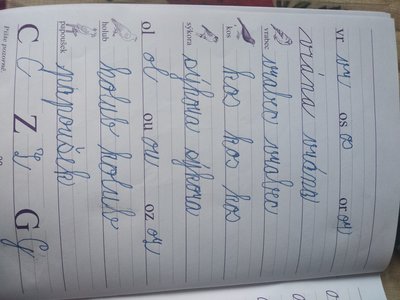 vr vr os os or or
vrána
vrabec
kos kos kos kos
sýkora sýkora sýkora
ol ol ou ou oz oz
holub holub holub
papoušek papoušek
C C Z Z G G